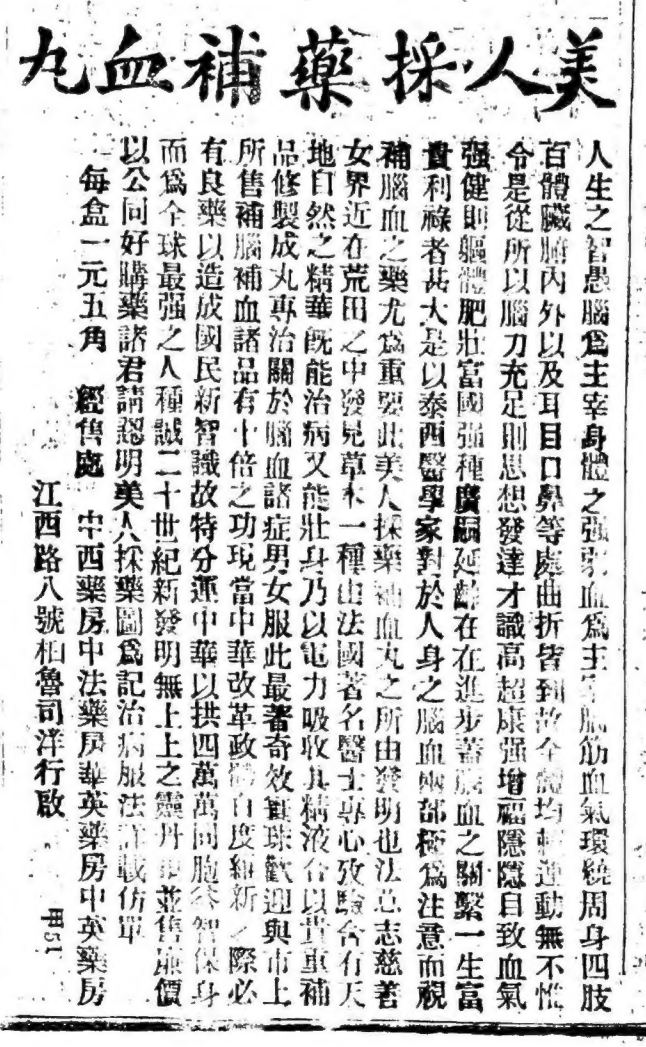 美人採藥補血丸
人生之智愚腦為主宰身體之强弱血為主宰腦筋血氣環繞周身四肢
百體臟腑內外以及耳目口鼻等處曲折皆到故全體均輕運動無不惟
令是從所以腦力充足則思想發達才識高超康强增福隱隱自致血氣
强健則軀體肥壯富國强種廣嗣延齡在在進步蓋腦血之關繫一生富
貴利祿者甚大是以泰西醫學家對於人身之腦血兩部極為注意而視
補腦血之藥尤為重要此美人採藥補血丸之所由發明也法 志慈善
女界近在荒田之中發見草木一種由法國著名醫士專心攷驗含有天
地自然之精華既能治病又能壯身乃以電力吸收其精液合以貴重補
品修製成丸專治關於腦血諸症男女服此最著奇效寰球歡迎與市上
所售補腦補血諸品有十倍之功現當中華改革政 百度維新之際必
有良藥以造成國民新智識故特分運中華以拱四萬萬同胞 智保身
而為全球最强之人種誠二十世紀新發明無上上之靈丹 並售廉價
以公同好購藥諸君請認明美人採藥圖為記治病服法詳載仿單
每盒一元五角　經售處　中西藥房中法藥房華英藥房中英藥房
江西路八號柏魯司洋行啟
甲51